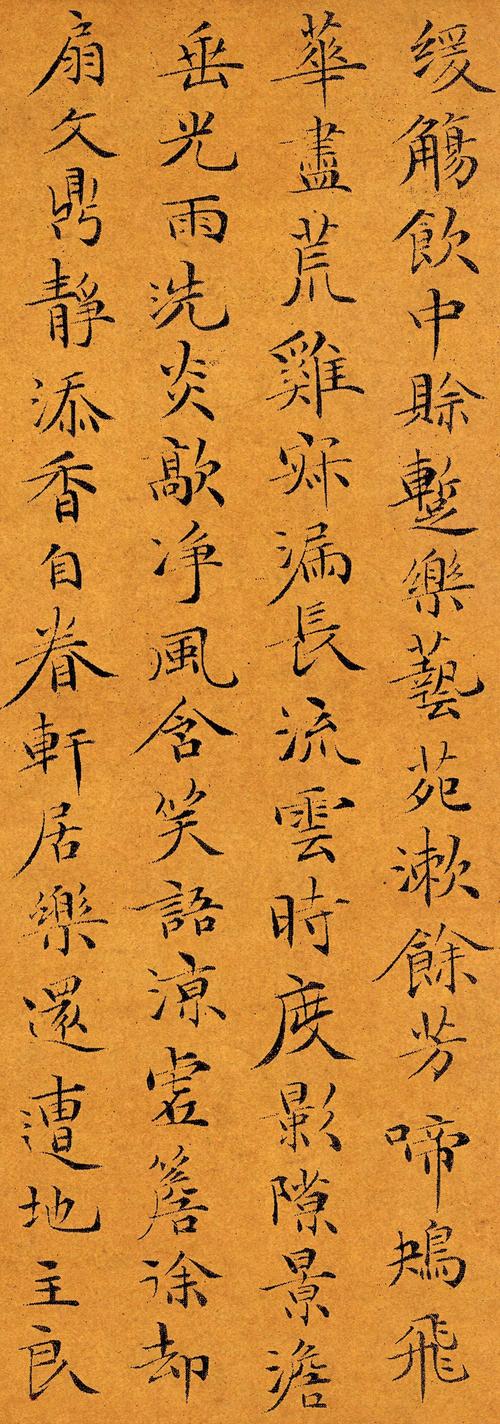 緩觴飲中賒蹔樂藝苑漱餘芳啼鴂飛
華盡荒雞寐漏長流雲時度影隙景澹
垂光雨洗炎歊净風含笑語涼虛簷徐却
扇文鼎靜添香自眷軒居樂還遭地主良